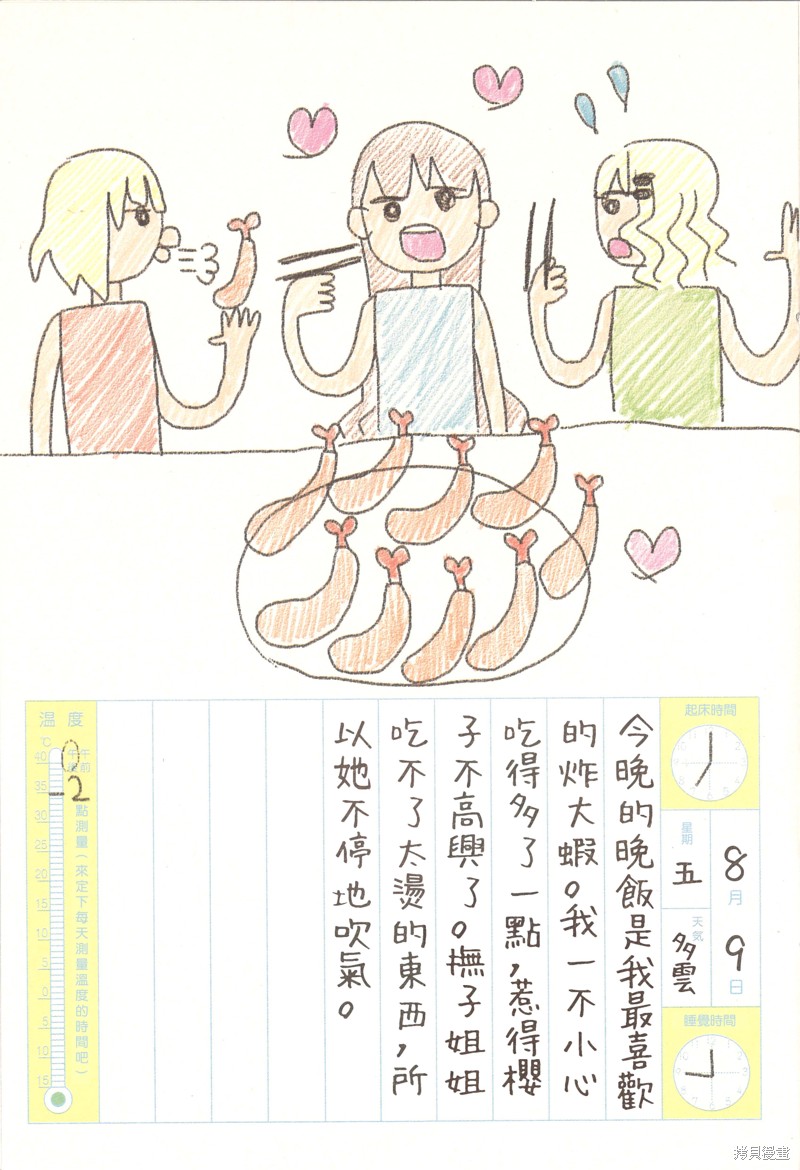 起床時間
8月9日
星期 五
天氣 多雲
睡覺時間
今晚的晚飯是我最喜歡
的炸大蝦。我一不小心
吃得多了一點,惹得櫻
子不高興了。撫子姐姐
吃不了太燙的東西,所
以她不停地吹氣。
溫度
℃
午前
午後
點測量(來定下每天測量溫度的時間吧)
40
35
30
25
20
15
10
5
0
5
10
15
拷貝漫畫